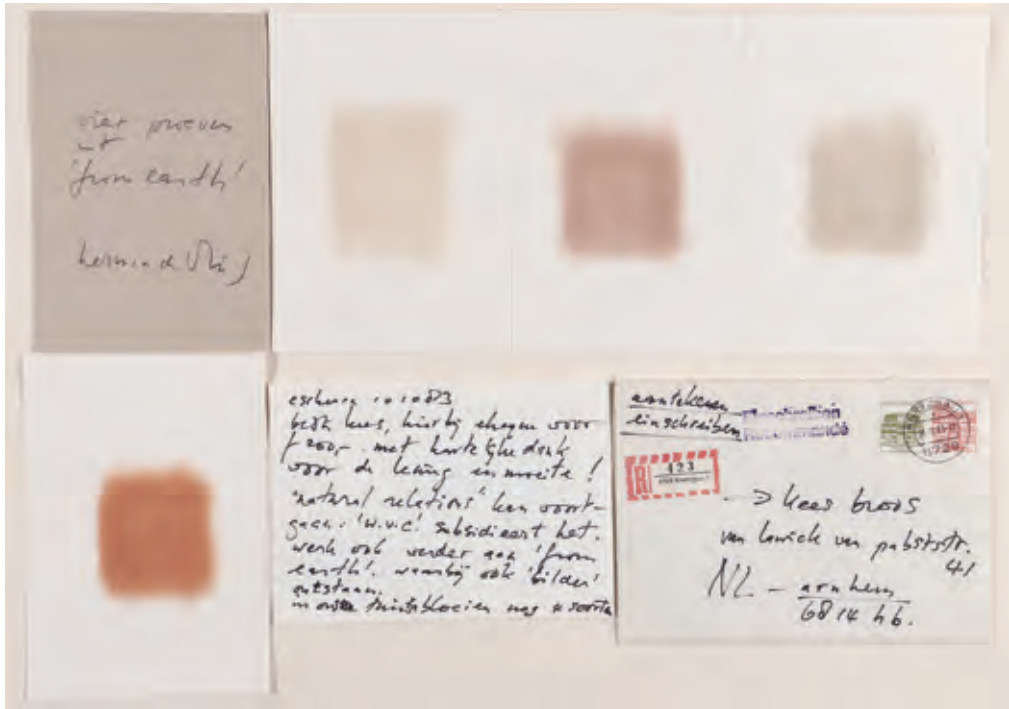 vier proeven
uit
'from earth'
herman de vries
beste kees, hierbij cheque voor
f 200,- met hartelijke dank
voor de lening en moeite!
'natural relations' kan voort-
gaan: 'w.v.c.' subsidieert het.
werk ook verder aan 'from
earth'. waarbij ook 'bilder'
ontstaan.
nog 4 soorten
aantekenen
einschreiben
Recommandé
R 423
→ kees broos
van lawick van pabststr.
41
NL - arnhem
6814 hb.